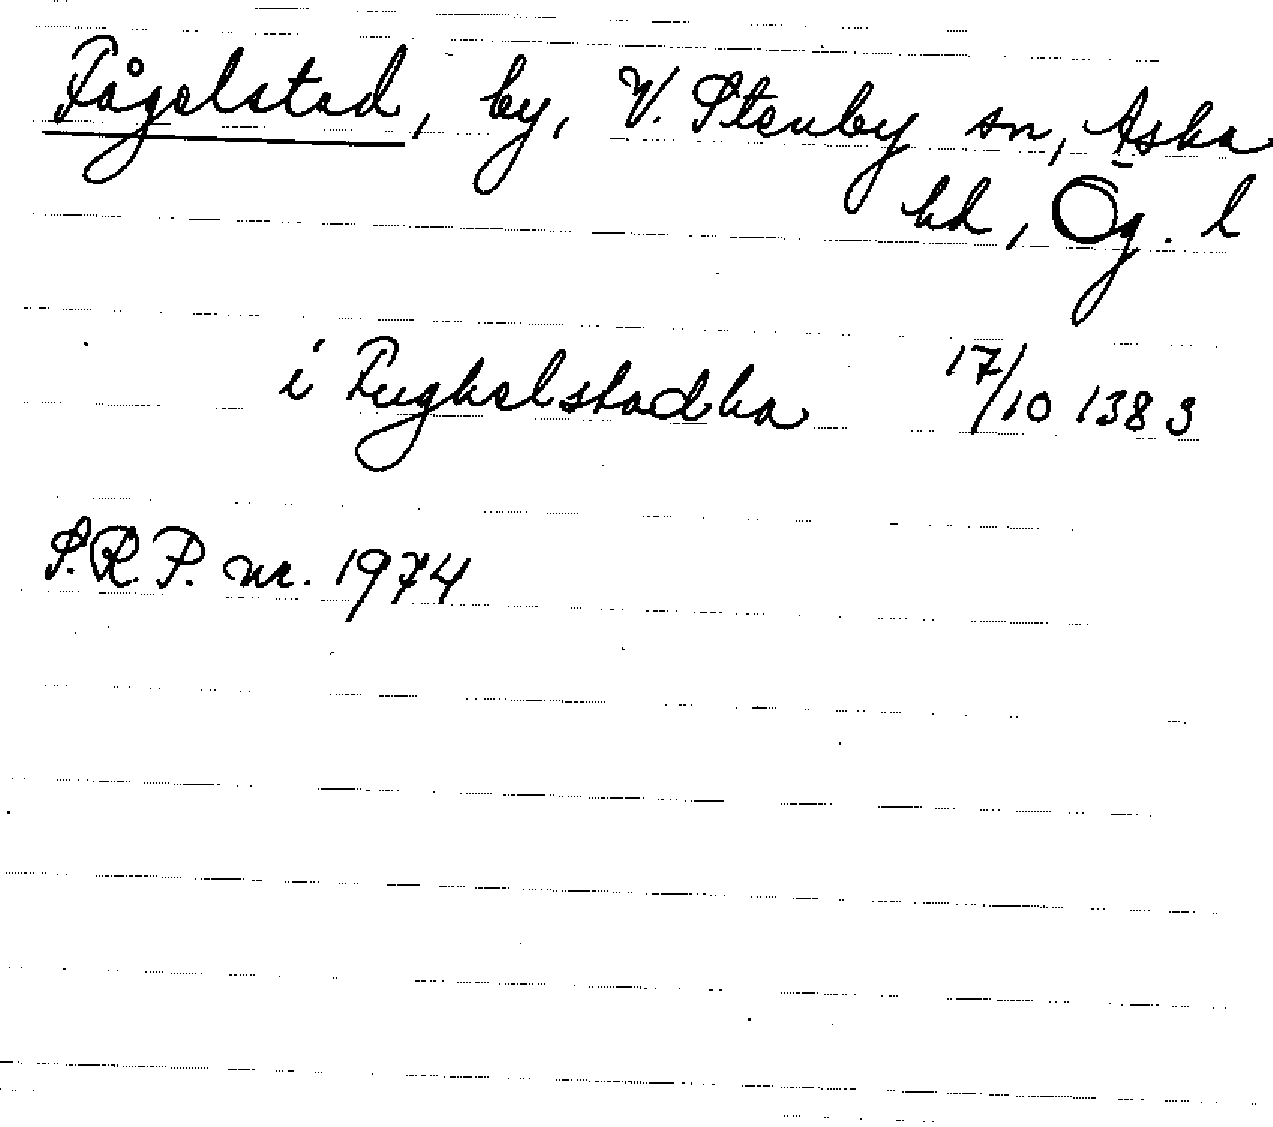 Fågelstad, by, V. Stenby sn, Aska
hd, Ög. l
i Fughelstadha 17/10 1383
S.R.P. nr. 1974